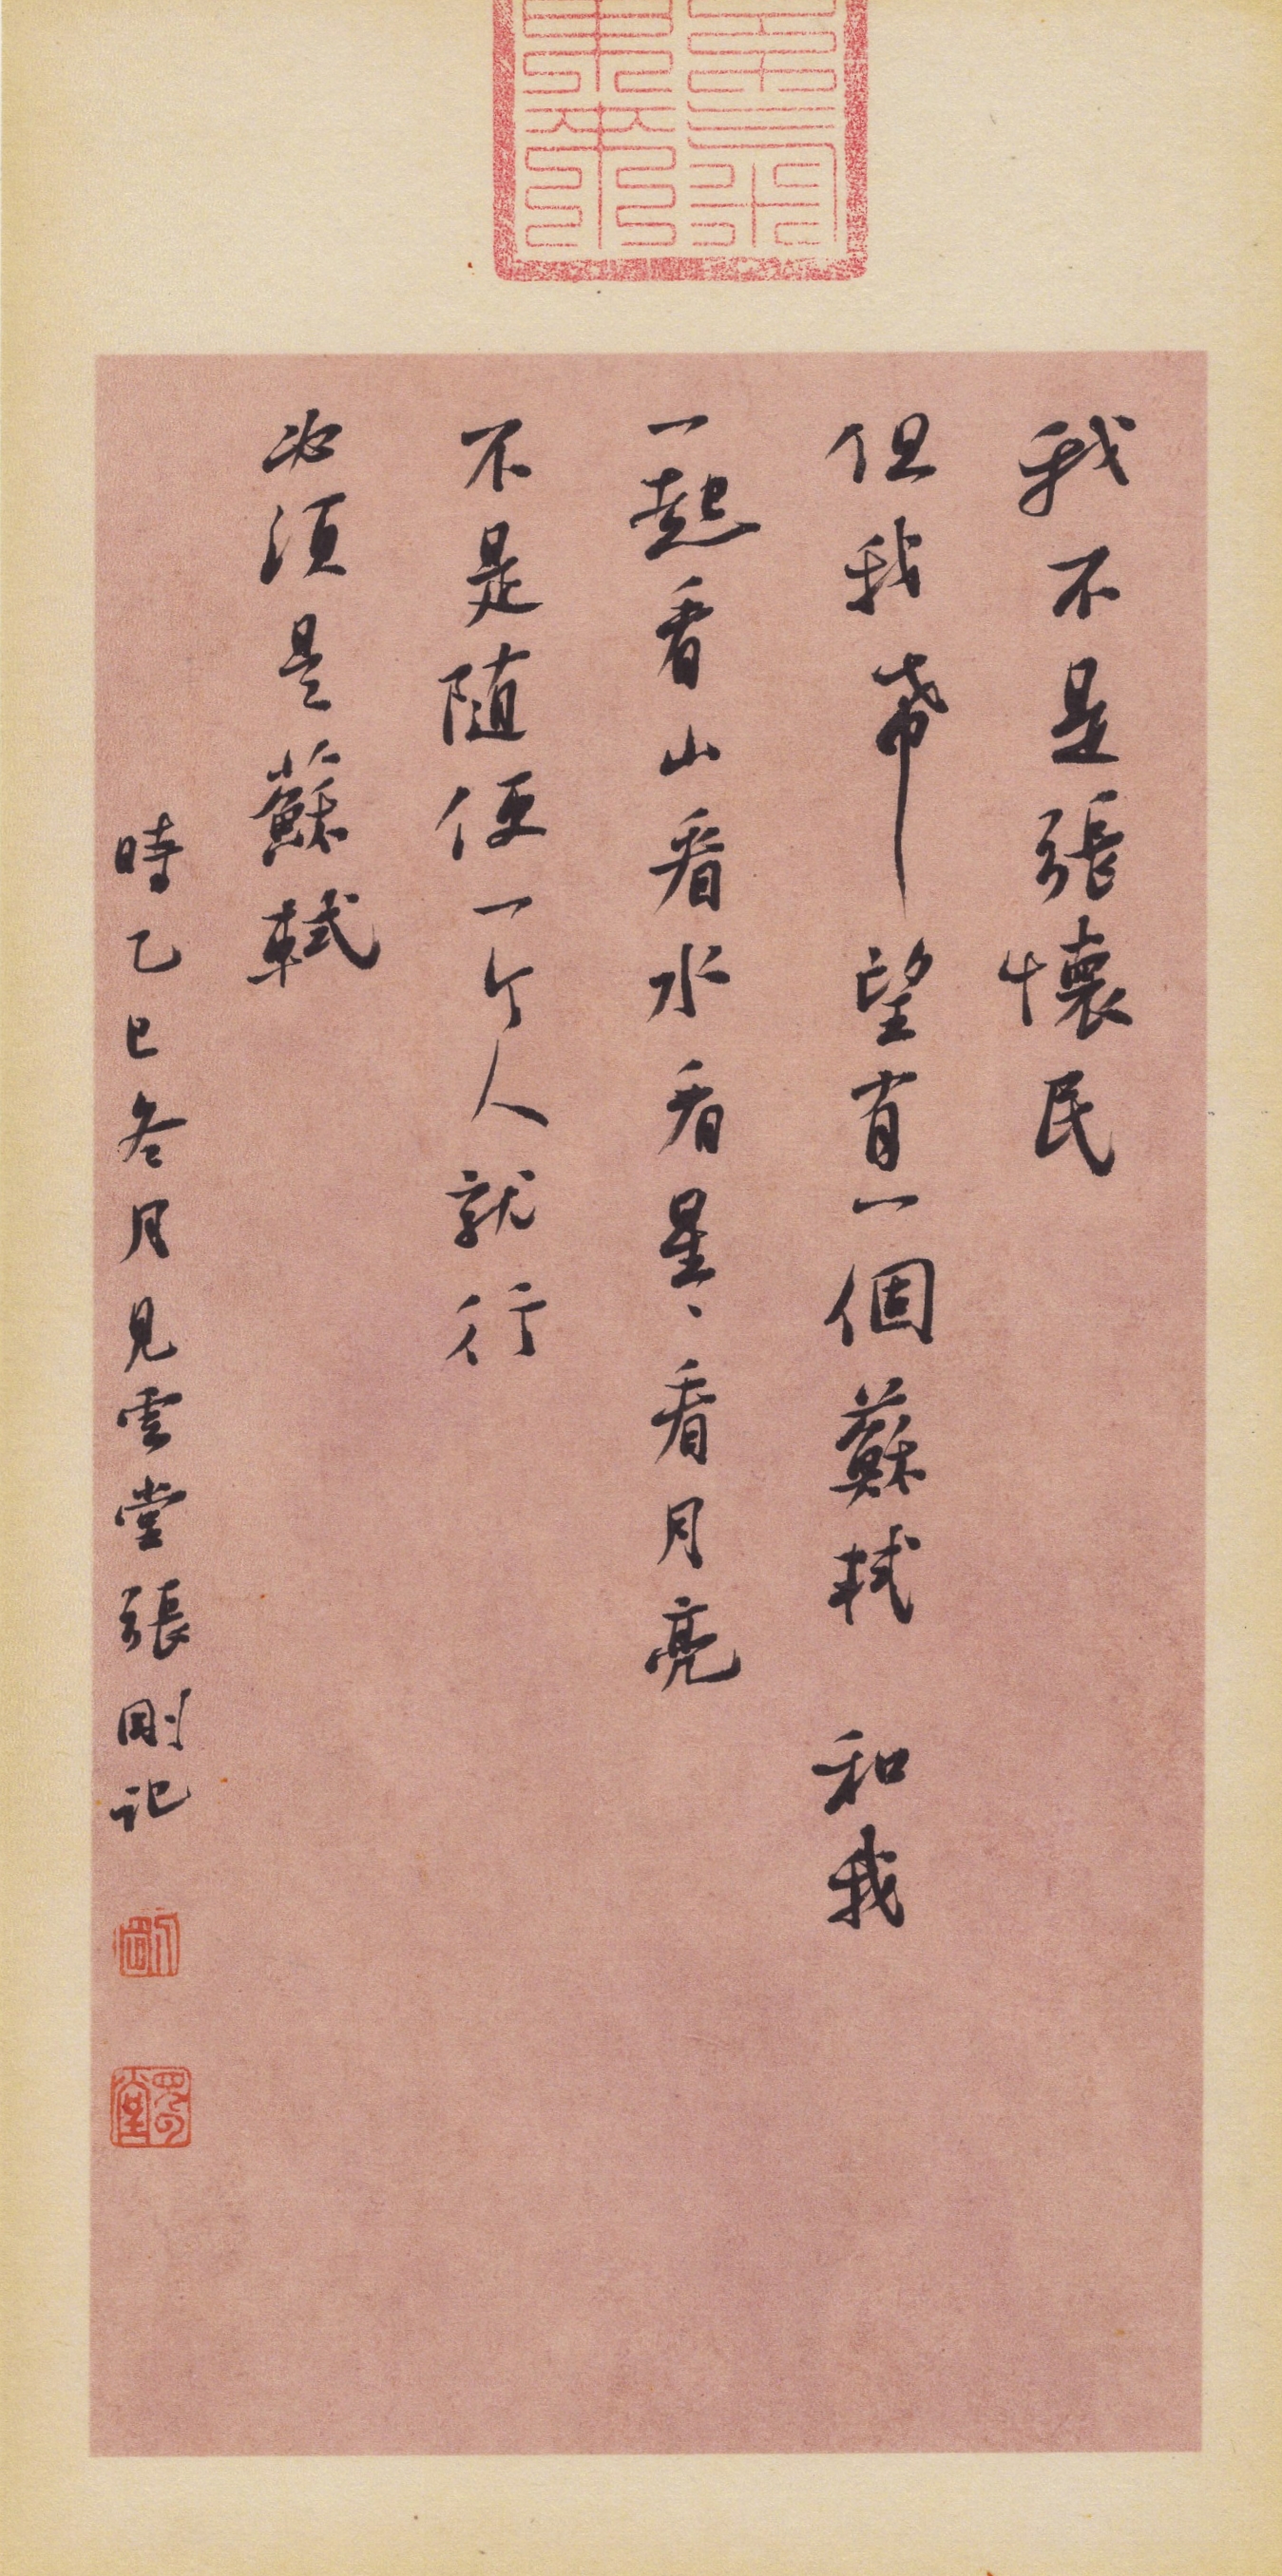 我不是張懷民
但我希望有一個蘇軾和我
一起看山看水看星〻看月亮
不是随便一个人就行
必須是蘇軾
時乙巳冬月見雲堂張剛記